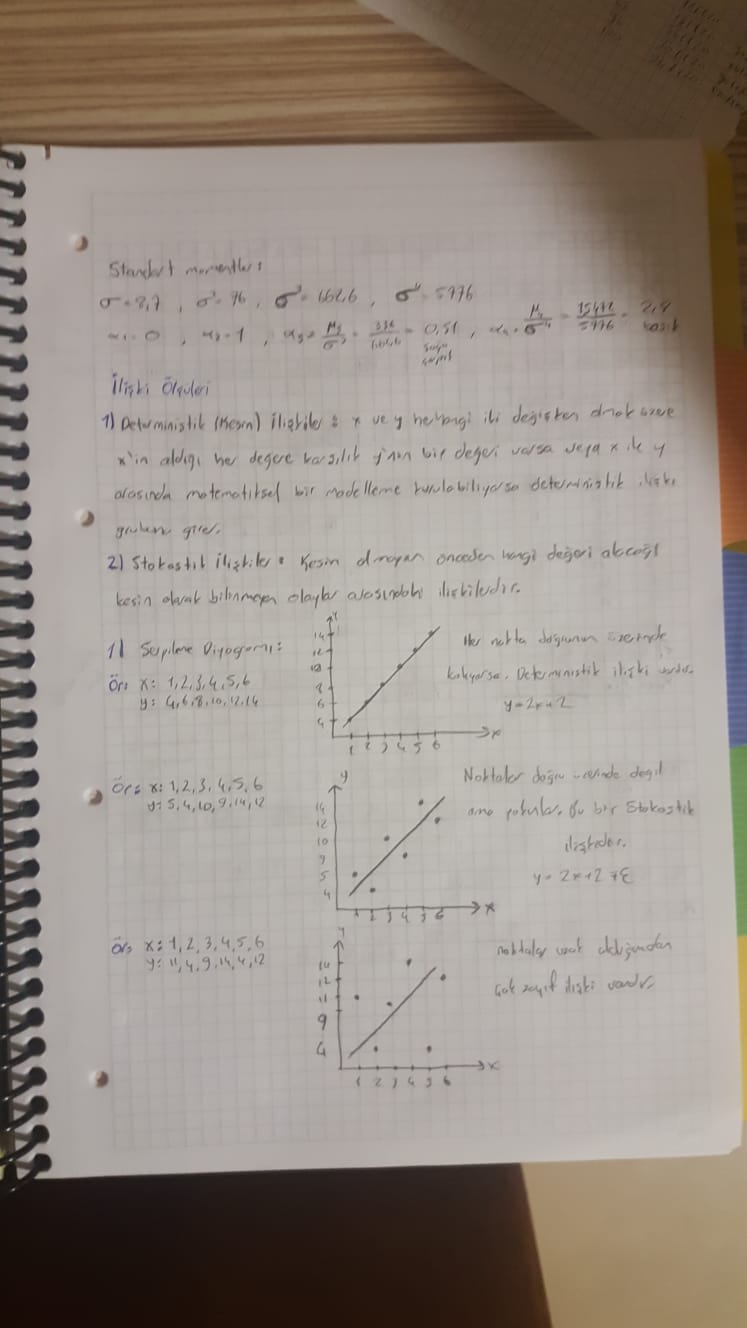 Standart momentler:
σ=8,7 , σ²=76 , σ³=662,6 , σ⁴=5776
α₁=0 , α₂=1 , α₃= μ₃/σ³ = 336/662,6 = 0,51 , α₄= μ₄/σ⁴ = /5776 = 2,
sağa çarpık basık
İlişki Ölçüleri
1) Deterministik (Kesin) ilişkiler: x ve y herhangi iki değişken olmak üzere
x'in aldığı her değere karşılık y'nin bir değeri varsa veya x ile y
arasında matematiksel bir modelleme kurulabiliyorsa deterministik ilişki
grubuna girer.
2) Stokastik ilişkiler: Kesin olmayan önceden hangi değeri alacağı
kesin olarak bilinmeyen olaylar arasındaki ilişkilerdir.
1) Serpilme Diyagramı:
Ör: x: 1,2,3,4,5,6
y: 4,6,8,10,12,14
y
14
12
10
8
6
4
1 2 3 4 5 6 x
Her nokta doğrunun üzerinde
kalıyorsa. Deterministik ilişki vardır.
y=2x+2
Ör: x: 1,2,3,4,5,6
y: 5,4,10,9,14,12
y
14
12
10
9
5
4
1 2 3 4 5 6 x
Noktalar doğru üzerinde değil
ama yakınlar. Bu bir Stokastik
ilişkidir.
y=2x+2+Ɛ
Ör: x: 1,2,3,4,5,6
y: 11,4,9,14,4,12
y
14
12
11
9
4
1 2 3 4 5 6 x
noktalar uzak olduğundan
çok zayıf ilişki vardır.